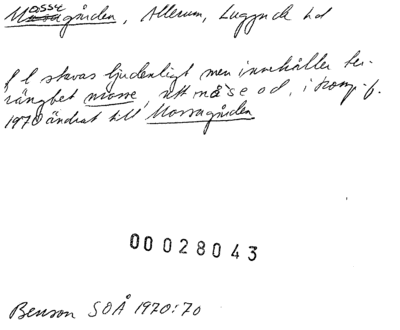 Mossagården, Allerum, Luggude hd
f l stavas ljudenligt men innehåller ter-
rängbet mosse, utt måse od, i komp.-f.
1970 ändrat till Mossagården
00028043
Benson SOÅ 1970:70